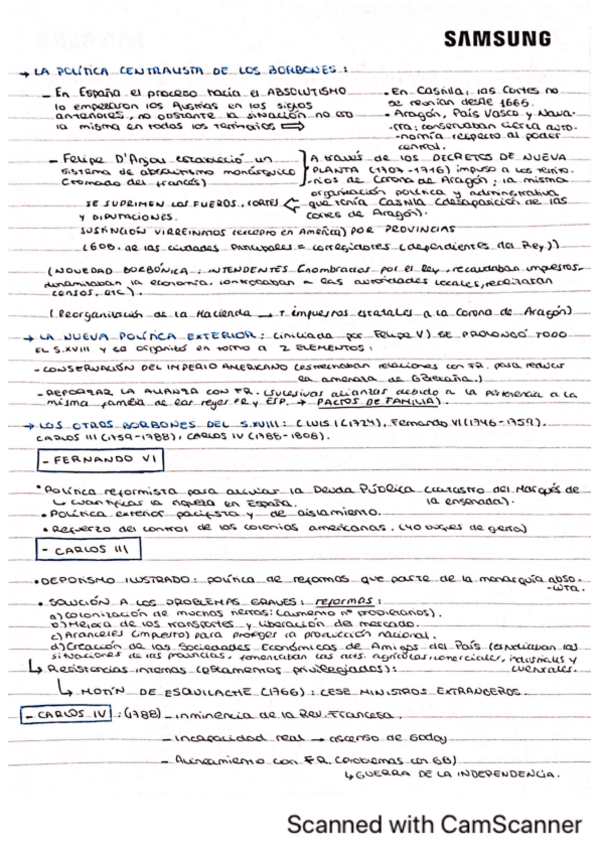 SAMSUNG
→ LA POLÍTICA CENTRALISTA DE LOS BORBONES:
- En España el proceso hacia el ABSOLUTISMO
lo empezaron los Austrias en los siglos
anteriores, no obstante la situación no era
la misma en todos los territorios ⇒
- En Castilla, las Cortes no
se reunían desde 1665.
- Aragón, País Vasco y Nava-
-rra: conservaban cierta auto-
-nomía respecto al poder
central.
- Felipe D'Anjou estableció un
sistema de absolutismo monárquico
(tomado del francés)
A través de los DECRETOS DE NUEVA
PLANTA (1707-1716) impuso a los territo-
-rios de Corona de Aragón; la misma
organización política y administrativa
que tenía Castilla (desaparición de las
cortes de Aragón).
SE SUPRIMEN LOS FUEROS, CORTES
Y DIPUTACIONES.
SUSTITUCIÓN VIRREINATOS (excepto en América) POR PROVINCIAS
(GOB. de las ciudades principales = corregidores (dependientes del Rey))
(NOVEDAD BORBÓNICA: INTENDENTES (nombrados por el Rey, recaudaban impuestos,
dinamizaban la economía, controlaban a las autoridades locales, realizaban
censos, etc).
(Reorganización de la Hacienda → ↑ impuestos estatales a la Corona de Aragón)
→ LA NUEVA POLÍTICA EXTERIOR: (iniciada por Felipe V) SE PROLONGÓ TODO
EL S.XVIII y se organizó en torno a 2 ELEMENTOS:
- CONSERVACIÓN DEL IMPERIO AMERICANO (estrechaban relaciones con FR. para reducir
la amenaza de G.Bretaña.)
- REFORZAR LA ALIANZA CON FR. (sucesivas alianzas debido a la pertenencia a la
misma familia de los reyes FR y ESP. → PACTOS DE FAMILIA).
→ LOS OTROS BORBONES DEL S.XVIII: (LUIS I (1724), Fernando VI (1746-1759),
CARLOS III (1759-1788), CARLOS IV (1788-1808).
- FERNANDO VI
• Política reformista para aliviar la Deuda Pública (catastro del Marqués de
↳ cuantificar la riqueza en España. la ensenada).
• Política exterior pacifista y de aislamiento.
• Refuerzo del control de las colonias americanas. (40 buques de guerra)
- CARLOS III
• DEPOTISMO ILUSTRADO: política de reformas que parte de la monarquía abso-
-luta.
• SOLUCIÓN A LOS PROBLEMAS GRAVES: reformas:
a) Colonización de muchas tierras (aumento nº propietarios).
b) Mejora de los transportes y liberación del mercado.
c) Aranceles (impuesto) para proteger la producción nacional.
d) Creación de las Sociedades Económicas de Amigos del País (estudiaban las
situaciones de las provincias, fomentaban las arts. agrícolas, comerciales, industriales y
↳ Resistencias internas (estamentos privilegiados): culturales.
↳ MOTÍN DE ESQUILACHE (1766): CESE MINISTROS EXTRANJEROS.
- CARLOS IV: (1788) - inminencia de la Rev. Francesa.
- Incapacidad real → ascenso de Godoy
- Alineamiento con FR. (problemas con GB)
↳ GUERRA DE LA INDEPENDENCIA.
Scanned with CamScanner